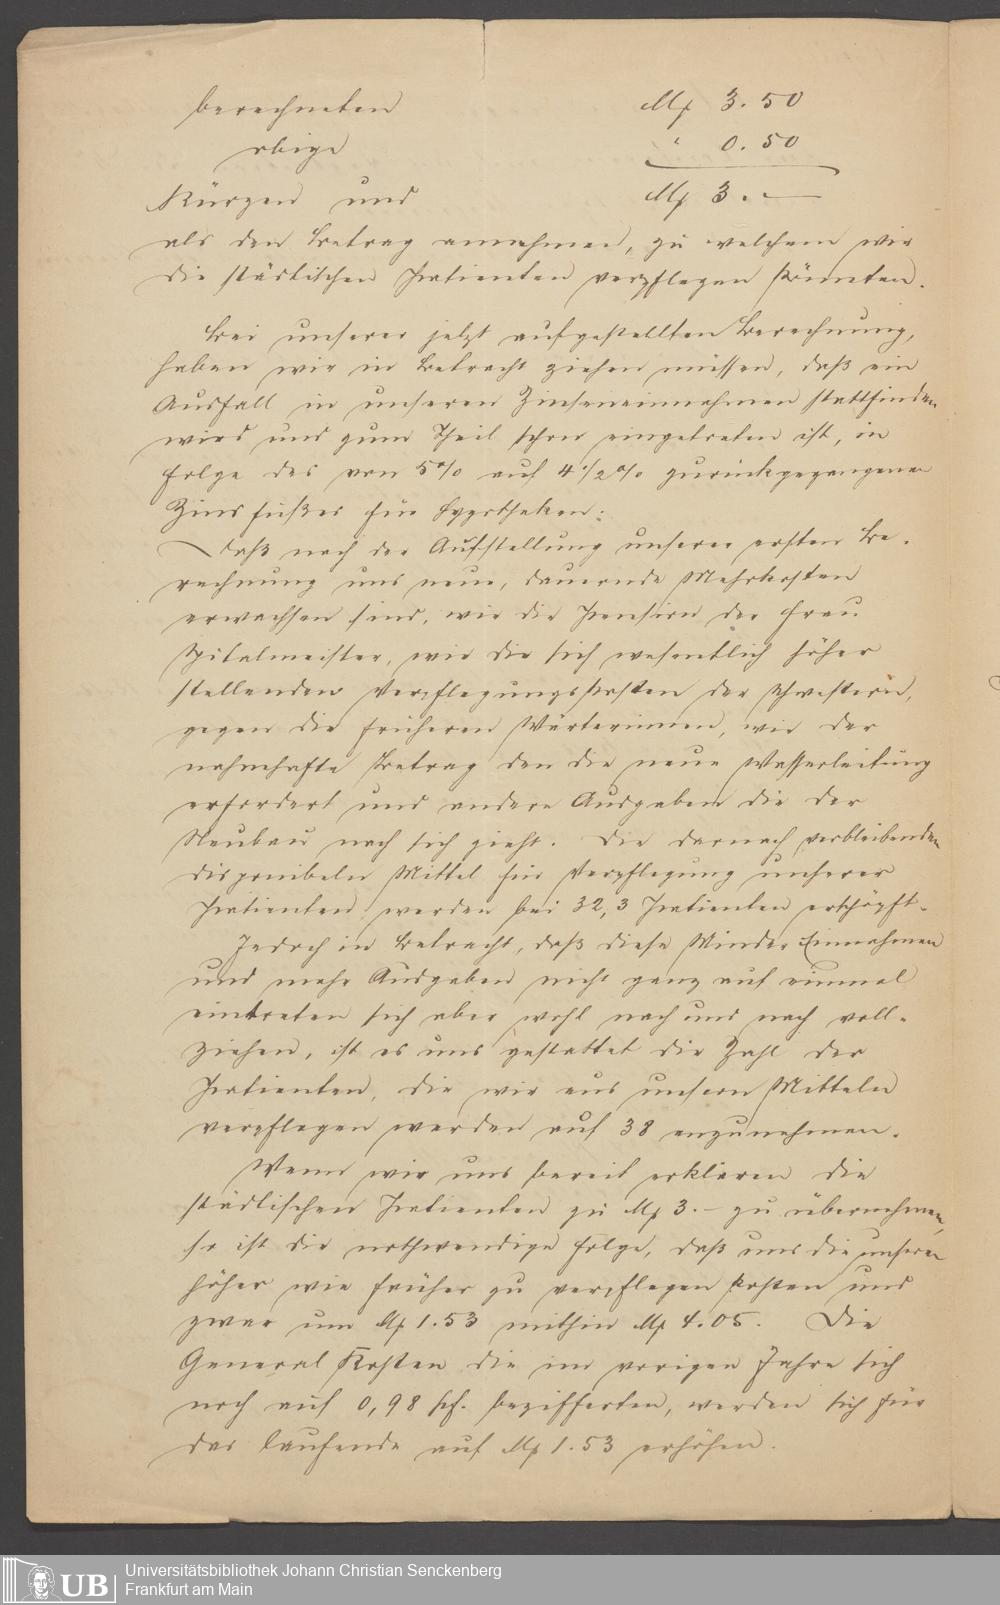 berechneten Mk 3.50
obige " 0.50
Kürzen und Mk 3.—
als den Betrag annehmen, zu welchem wir
die städtischen Patienten verpflegen könnten.
Bei unserer jetzt aufgestellten Berechnung,
haben wir in Betracht ziehen müssen, daß ein
Ausfall in unseren Zinseneinnahmen stattfinden
wird und zum Theil schon eingetreten ist, in
Folge des von 5% auf 4½% zurückgegangenen
Zinsfußes für Hypotheken;
daß nach der Aufstellung unserer ersten Be-
rechnung uns neue, dauernde Mehrkosten
erwachsen sind, wie die Pension der Frau
Spitalmeister, wie die sich wesentlich höher
stellenden Verpflegungskosten der Schwestern,
gegen die früheren Wärterinnen, wie der
nahmhafte Betrag den die neue Wasserleitung
erfordert und andere Ausgaben die der
Neubau nach sich zieht. Die darnach verbleibenden
disponibeln Mittel für Verpflegung unserer
Patienten werden bei 32,3 Patienten erschöpft.
Jedoch in Betracht, daß diese Minder Einnahmen
und mehr Ausgaben nicht ganz auf einmal
eintreten sich aber wohl nach und nach voll-
ziehen, ist es uns gestattet die Zahl der
Patienten, die wir aus unsern Mitteln
verpflegen werden auf 38 anzunehmen.
Wenn wir uns bereit erklären die
städtischen Patienten zu Mk 3.– zu übernehmen,
so ist die nothwendige Folge, daß uns die unseren
höher wie früher zu verpflegen kosten und
zwar um Mk 1.53 mithin Mk 4.05. Die
General Kosten die im vorigen Jahre sich
noch auf 0,98 pf. bezifferten, werden sich für
das laufende auf Mk 1.53 erhöhen.
UB
Universitätsbibliothek Johann Christian Senckenberg
Frankfurt am Main